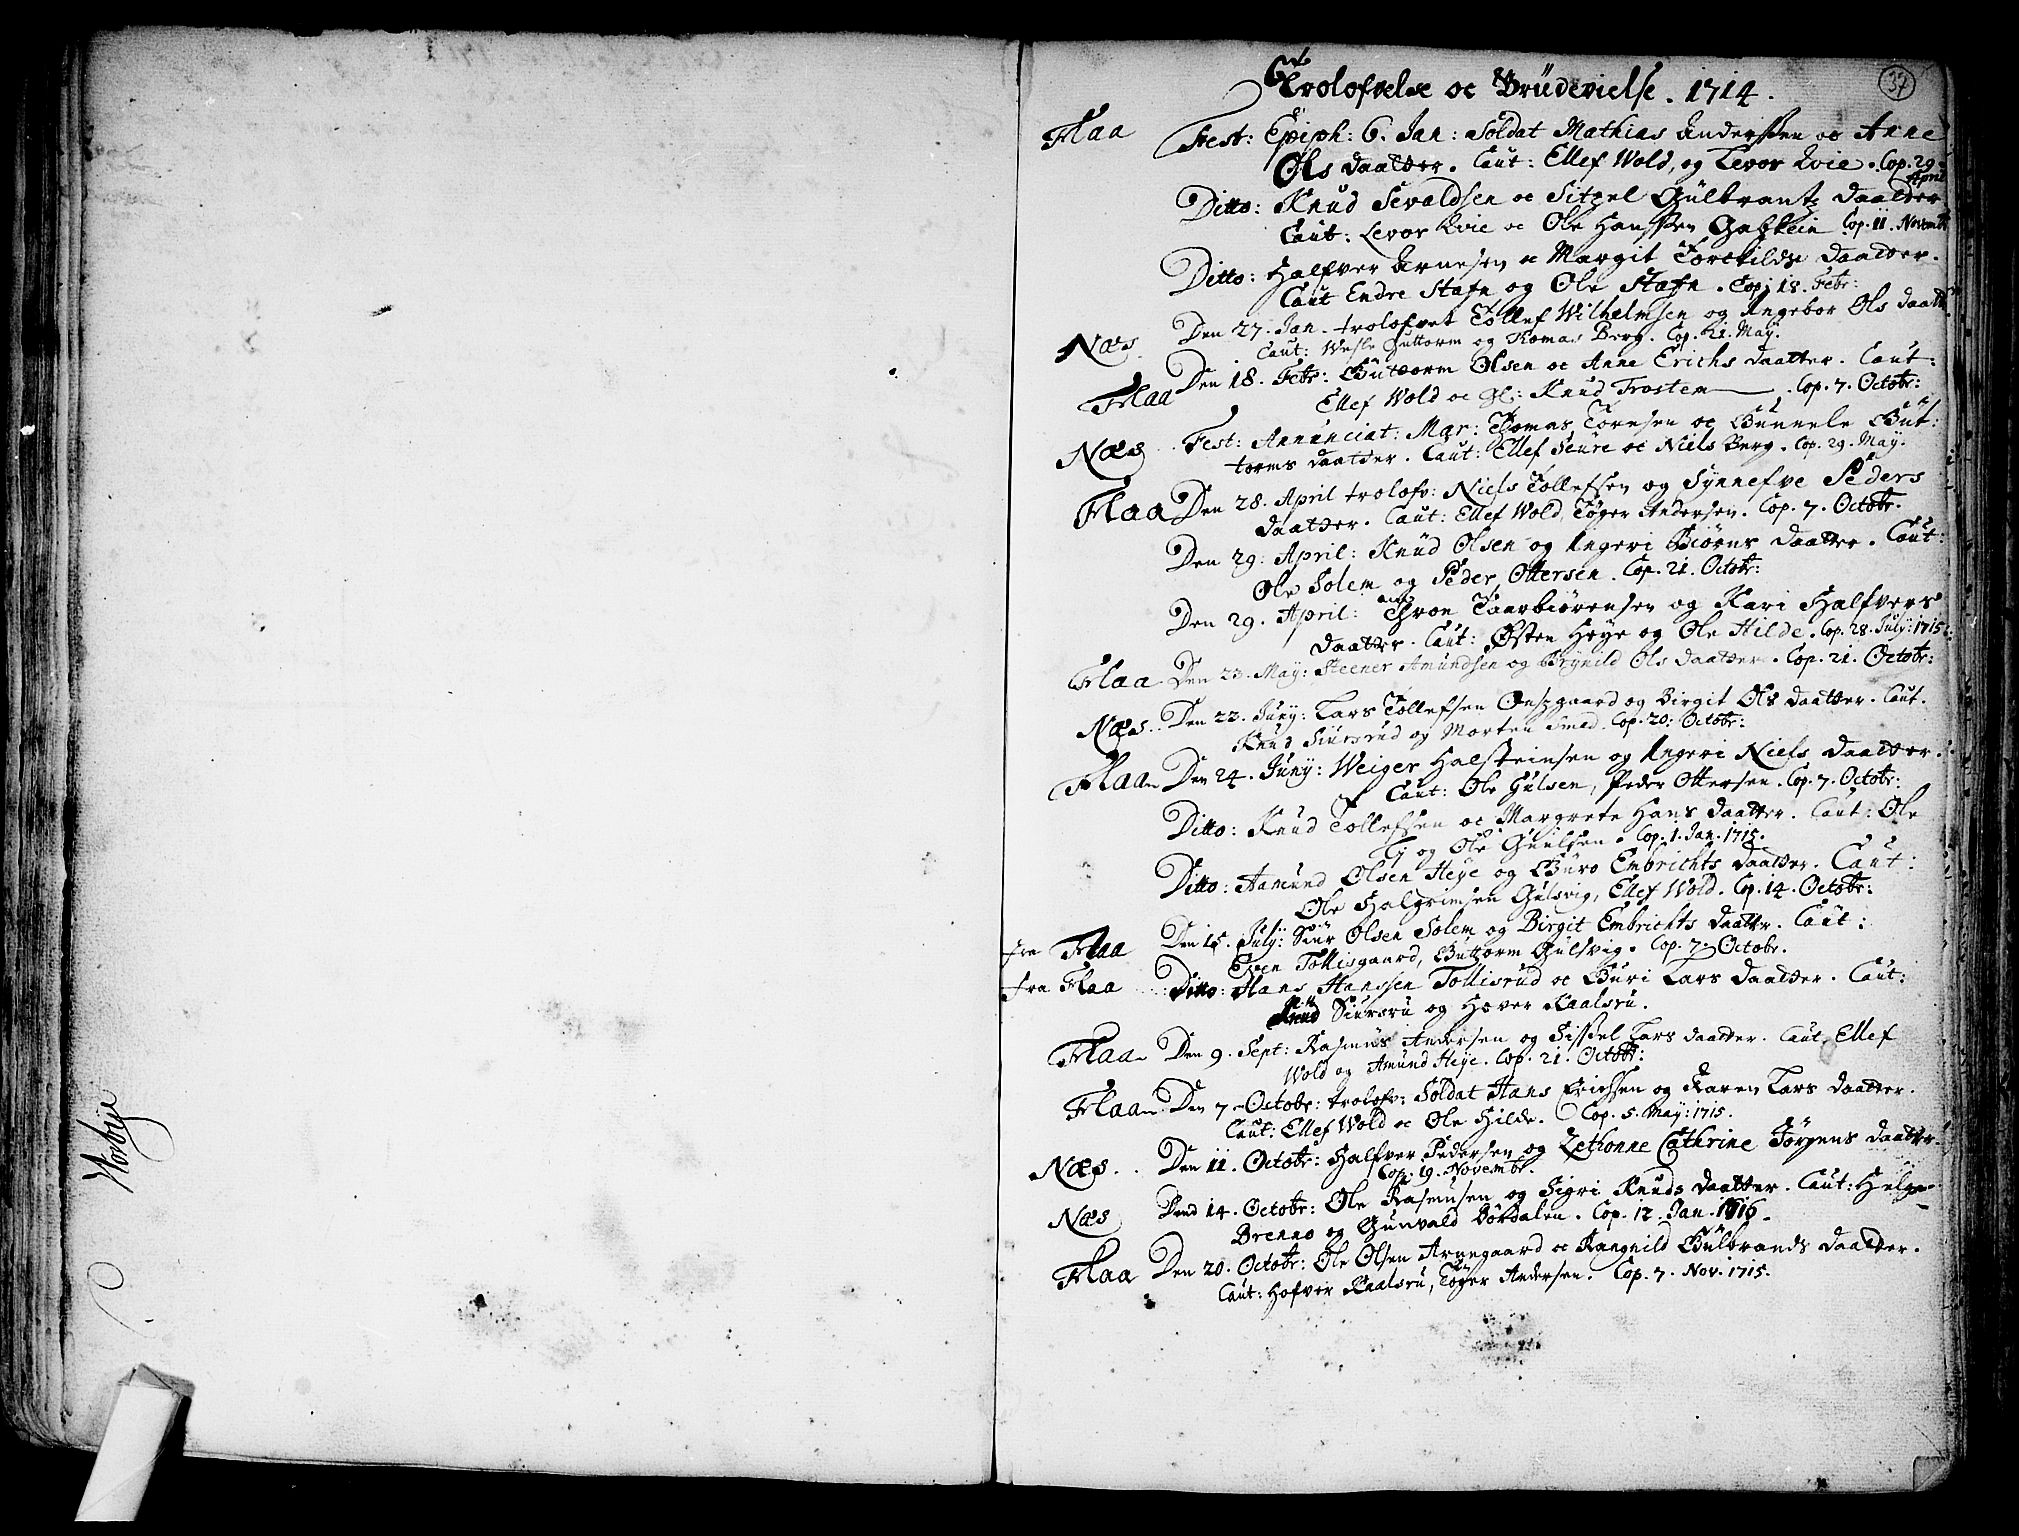 Norbye
37
Trolofvelse oc Brüdevielse. 1714.
Flaa Fest: Epiph: 6. Jan: Soldat Mathias Andersen oc Anne
Ols daatter. Caut: Ellef Wold, og Levor Qvie. Cop. 29
April
Ditto: Knud Sevaldsen oc Sitzel Gülbrantz daatter
Caut: Levor Qvie oc Ole Hanssen Cop. 11. Novembr
Ditto: Halfver Arnesen oc Margit Torchilds daatter.
Caut Endre Stafn og Ole Stafn. Cop. 18. Febr:
Næs. Den 27. Jan. trolofvet Tollef Wilhelmsen og Ingebor Ols daatt
Caut: Wesle Guttorm og Tomas Berg. Cop. 21. May.
Flaa Den 18. Febr: Gutorm Olsen oc Anne Erichs daatter. Caut:
Ellef Wold oc Knud Trostem. Cop. 7. Octobr:
Næs Fest: Annunciat: Mar: Tomas Toresen oc Gunnele Gut:
torms daatter. Caut: Ellef Seure oc Niels Berg. Cop. 29. May.
Flaa Den 28. April trolofv: Niels Tollefsen og Synnefve Peders
daatter. Caut: Ellef Wold, Toger Andersen. Cop. 7. Octobr.
Den 29. April: Knüd Olsen og Ingeri Biörns daatter. Caut:
Ole Solem og Peder Ottersen. Cop. 21. Octobr:
Den 29. April: Thron Taarbiörensen og Kari Halfvers
daatter. Caut: Østen Høye og Ole Hilde. Cop. 28. July: 1715.
Flaa Den 23. May: Steener Amundsen og Brynild Ols daatter. Cop. 21. Octobr:
Næs. Den 22. Juny: Lars Tollefsen Onsgaard og Birgit Ols daatter. Caut.
Knud Siursrud og Morten Smed. Cop. 20. Octobr:
Flaa Den 24. Juny: Weiger Halsteinsen og Ingeri Niels daatter.
Caut: Ole Gülsen, Peder Ottersen. Cop. 7. Octobr:
Ditto: Knud Tollefsen oc Margrete Hans daatter. Caut: Ole
og Ole Guulsen. Cop. 1. Jan. 1715.
Ditto: Aamund Olsen Høye og Guro Embrichts daatter. Caut:
Ole Halgrimsen Gulsvig, Ellef Wold. Cop. 14. Octobr:
fra Flaa Den 15. July: Siur Olsen Solem og Birgit Embrichts daatter. Caut:
Even Tollisgaard, Guttorm Gulsvig. Cop. 7. Octobr.
fra Flaa Ditto: Hans Hanssen Tollisrud oc Guri Lars daatter. Caut:
Knud Siursrü og Hover Kaalsrü.
Flaa Den 9. Sept: Rasmus Andersen og Sissel Lars daatter. Caut. Ellef
Wold og Amund Høye. Cop. 21. Octobr:
Flaa Den 7. Octobr: trolofv: Soldat Hans Erichsen og Karen Lars daatter.
Caut: Ellef Wold oc Ole Hilde. Cop. 5. May: 1715.
Næs. Den 11. Octobr: Halfver Pedersen og Zethonne Cathrine Jörgens daatter
Cop. 19. Novembr.
Næs Dend 14. Octobr: Ole Rasmusen og Sigri Knuds daatter. Caut: Helge
Brenno og Gunvald Bördalen. Cop. 12. Jan. 1716.
Flaa Den 20. Octobr: Ole Olsen Arnegaard oc Rangnild Gülbrands daatter.
Caut: Hofver Kaalsrü, Toger Andersen. Cop. 7. Nov. 1715.